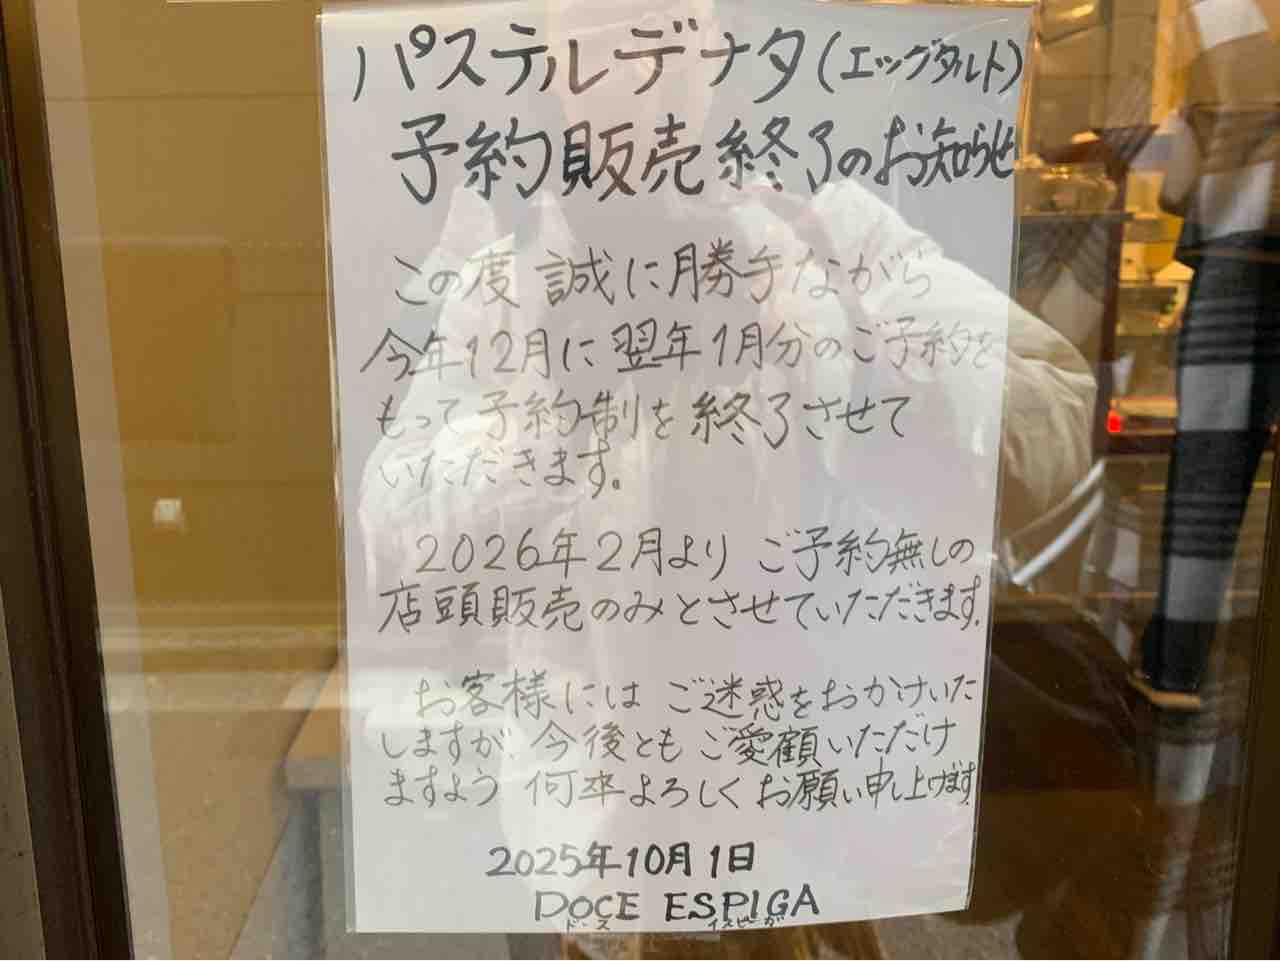 パステルデナタ(エッグタルト)
予約販売終了のお知らせ
この度 誠に勝手ながら
今年12月に翌年1月分のご予約を
もって予約制を終了させて
いただきます。
2026年2月より ご予約無しの
店頭販売のみとさせていただきます。
お客様には ご迷惑をおかけいた
しますが、今後とも ご愛顧いただけ
ますよう 何卒よろしくお願い申し上げます。
2025年10月1日
DOCE ESPIGA
ドース イスピーガ